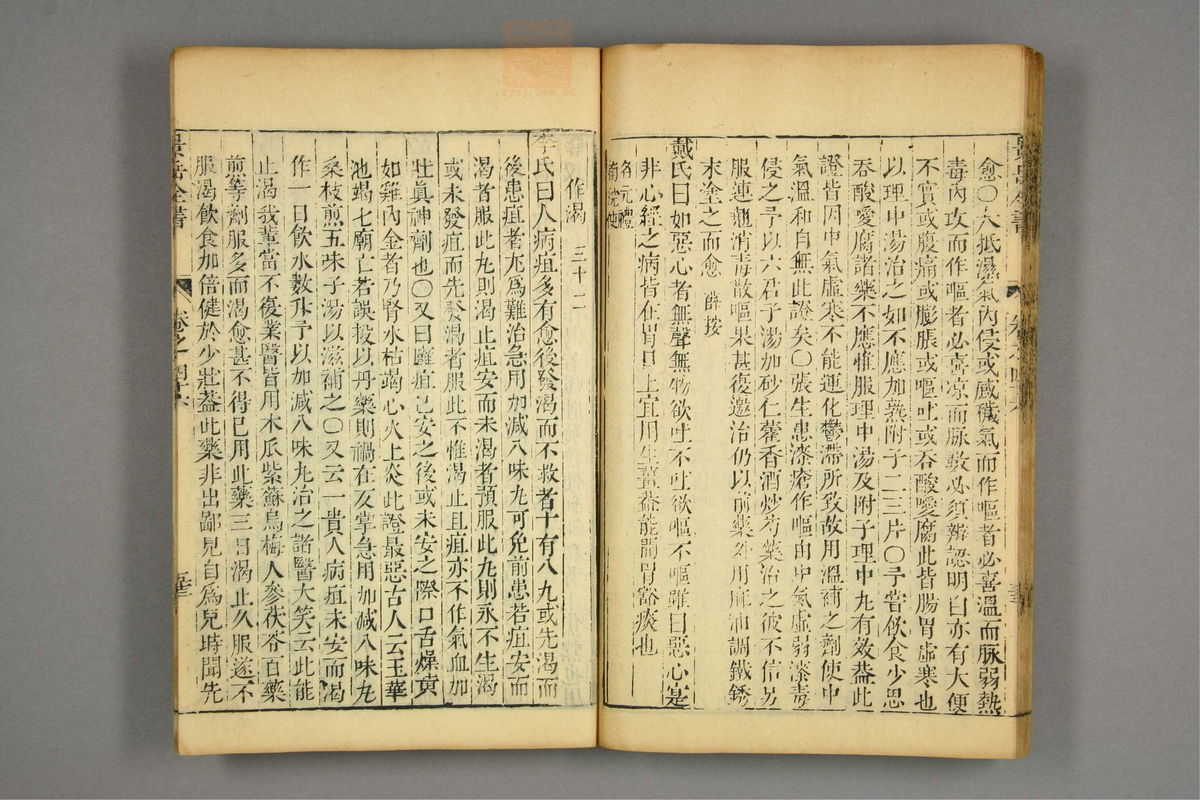 愈〇大抵濕氣內侵或感穢氣而作嘔者必喜溫而脉弱熱
毒內攻而作嘔者必喜凉而脉數必須辨認明白亦有大便
不實或腹痛或膨脹或嘔吐或吞酸噯腐此皆腸胃虛寒也
以理中湯治之如不應加熟附子二三片〇予嘗飲食少思
吞酸愛腐諸藥不應惟服理中湯及附子理中丸有效葢此
證皆因中氣虛寒不能運化鬱滯所致故用溫補之劑使中
氣溫和自無此證矣〇張生患漆瘡作嘔由中氣虛弱漆毒
侵之予以六君子湯加砂仁藿香酒炒芍藥治之彼不信另
服連翹消毒散嘔果甚復邀治仍以前藥外用麻油調鐵銹
末塗之而愈 薛按
戴氏曰如惡心者無聲無物欲吐不吐欲嘔不嘔雖曰惡心寔
非心經之病皆在胃口上宜用生薑葢能開胃豁痰也
名元禮
南院使
作渴 三十二
李氏曰人病疽多有愈後發渴而不救者十有八九或先渴而
後患疽者尤爲難治急用加減八味丸可免前患若疽安而
渴者服此丸則渴止疽安而未渴者預服此丸則永不生渴
或未發疽而先發渴者服此不惟渴止且疽亦不作氣血加
壯眞神劑也〇又曰癰疽已安之後或未安之際口舌燥黄
如雞內金者乃腎水枯竭心火上炎此證最惡古人云玉華
池竭七廟亡若誤投以丹藥則禍在反掌急用加減八味丸
桑枝煎五味子湯以滋補之〇又云一貴人病疽未安而渴
作一日飲水數升予以加減八味丸治之諸醫大笑云此能
止渴我輩當不復業醫皆用木瓜紫蘇烏梅人參茯苓百藥
煎等劑服多而渴愈甚不得已用此藥三日渴止久服遂不
服渴飲食加倍健於少壯葢此藥非出鄙見自爲兒時聞先
景岳全書
卷之四十六